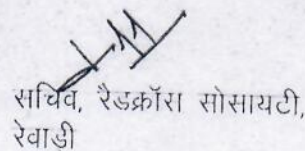 सचिव, रैडक्रॉस सोसायटी,
रेवाड़ी